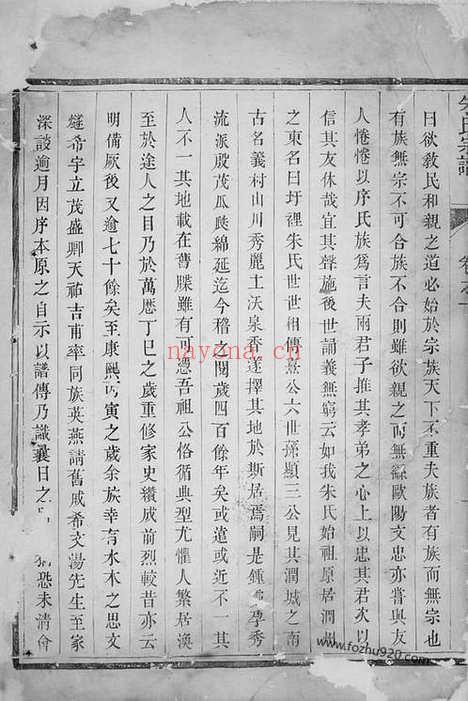 朱氏宗譜
卷之一
曰欲敎民和親之道必始於宗族天下不重夫族者有族而無宗也
有族無宗不可合族不合則雖欲親之而無繇歐陽文忠亦嘗與友
人惓惓以序氏族爲言夫兩君子推其孝弟之心上以忠其君次以
信其友休哉宜其聲施後世誦義無窮云如我朱氏始祖原居潤州
之東名曰圩裡朱氏世世相傳熹公六世孫顯三公見其澗城之南
古名義村山川秀麗土沃泉香遂擇其地於斯居焉嗣是鍾希孕秀
流派殷茂瓜瓞綿延迄今稽之閱歲四百餘年矣或遠或近不一其
人不一其地載在舊牒雖有可憑吾祖公恪循典型尤懼人繁居渙
至於途人之目乃於萬厯丁巳之歲重修家史纘成前烈較昔亦云
明備厥後又逾七十餘矣至康熙丙寅之歲余族幸言木本之思文
燧希宇立茂盛卿天祐吉甫率同族英燕請舊戚希文湯先生至家
深談逾月因序本原之自示以譜傳乃識曩日之 猶恐未清會
nayona.cn
www.fozhu920.com